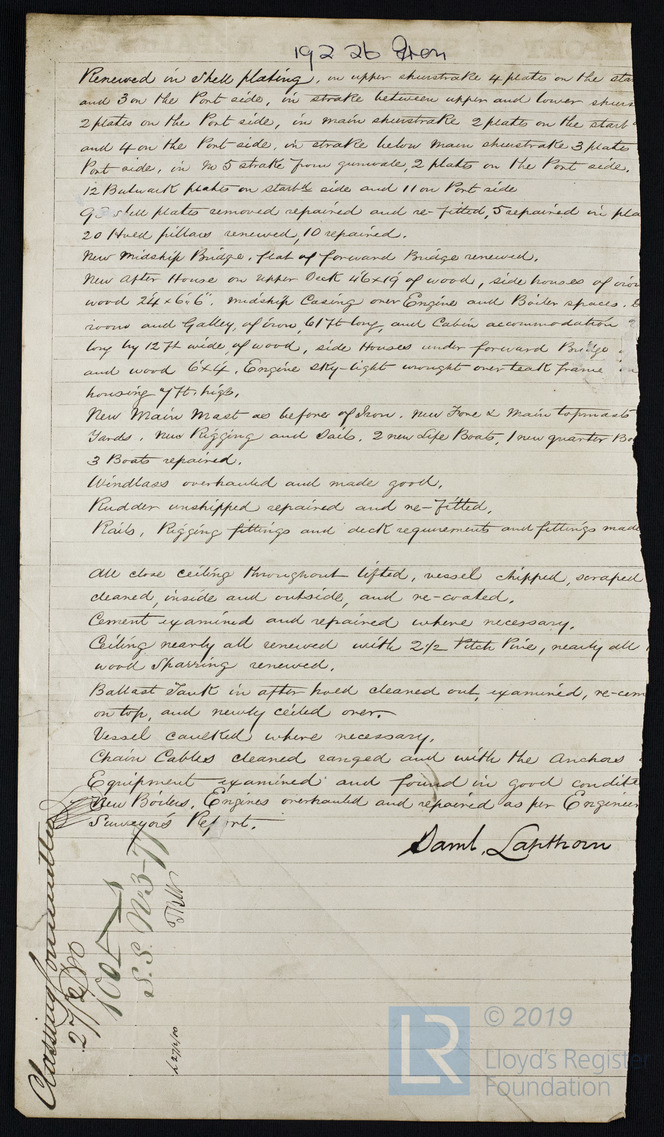 192 26 Iron
Renewed in Shell plating, in upper sheerstrake 4 plates on the star
and 3 on the Port side, in strake between upper and lower sheers
2 plates on the Port side, in main sheerstrake 2 plates on the starb
and 4 on the Port side, in strake below main sheerstrake 3 plates
Port side, in No 5 strake from gunwale, 2 plates on the Port side.
12 Bulwark plates on starbd side and 11 on Port side
shell plates removed repaired and re-fitted, 5 repaired in pla
20 Hold pillars renewed, 10 repaired.
New Midship Bridge, flat of forward Bridge renewed.
New After House on upper Deck 46 x 19 of wood, side houses of iron
wood 24 x 6.6". Midship Casing over Engine and Boiler spaces.
rooms and Galley, of iron, 61 ft long, and Cabin accommodation
long by 12 ft wide, of wood, side Houses under forward Bridge
and wood 6 x 4. Engine sky-light wrought over teak frame on
housing 7 ft high.
New Main Mast as before of Iron. New Fore & Main topmasts
Yards. New Rigging and Sails. 2 new Life Boats, 1 new quarter Bo
3 Boats repaired.
Windlass overhauled and made good.
Rudder unshipped repaired and re-fitted.
Rails, Rigging fittings and deck requirements and fittings made
All close ceiling throughout lifted, vessel chipped, scraped
cleaned, inside and outside, and re-coated.
Cement examined and repaired where necessary.
Ceiling nearly all renewed with 2 1/2 Pitch Pine, nearly all
wood Sparring renewed.
Ballast Tank in after hold cleaned out, examined, re-cem
on top, and newly ceiled over.
Vessel caulked where necessary.
Chain Cables cleaned ranged and with the Anchors
Equipment examined and found in good condite
New Boilers, Engines overhauled and repaired as per Engineer
Surveyor's Report.
Saml. Lapthorn
Classing Committee
100 A
S.S. No 3-77
© 2019
LR
Lloyd's Register
Foundation